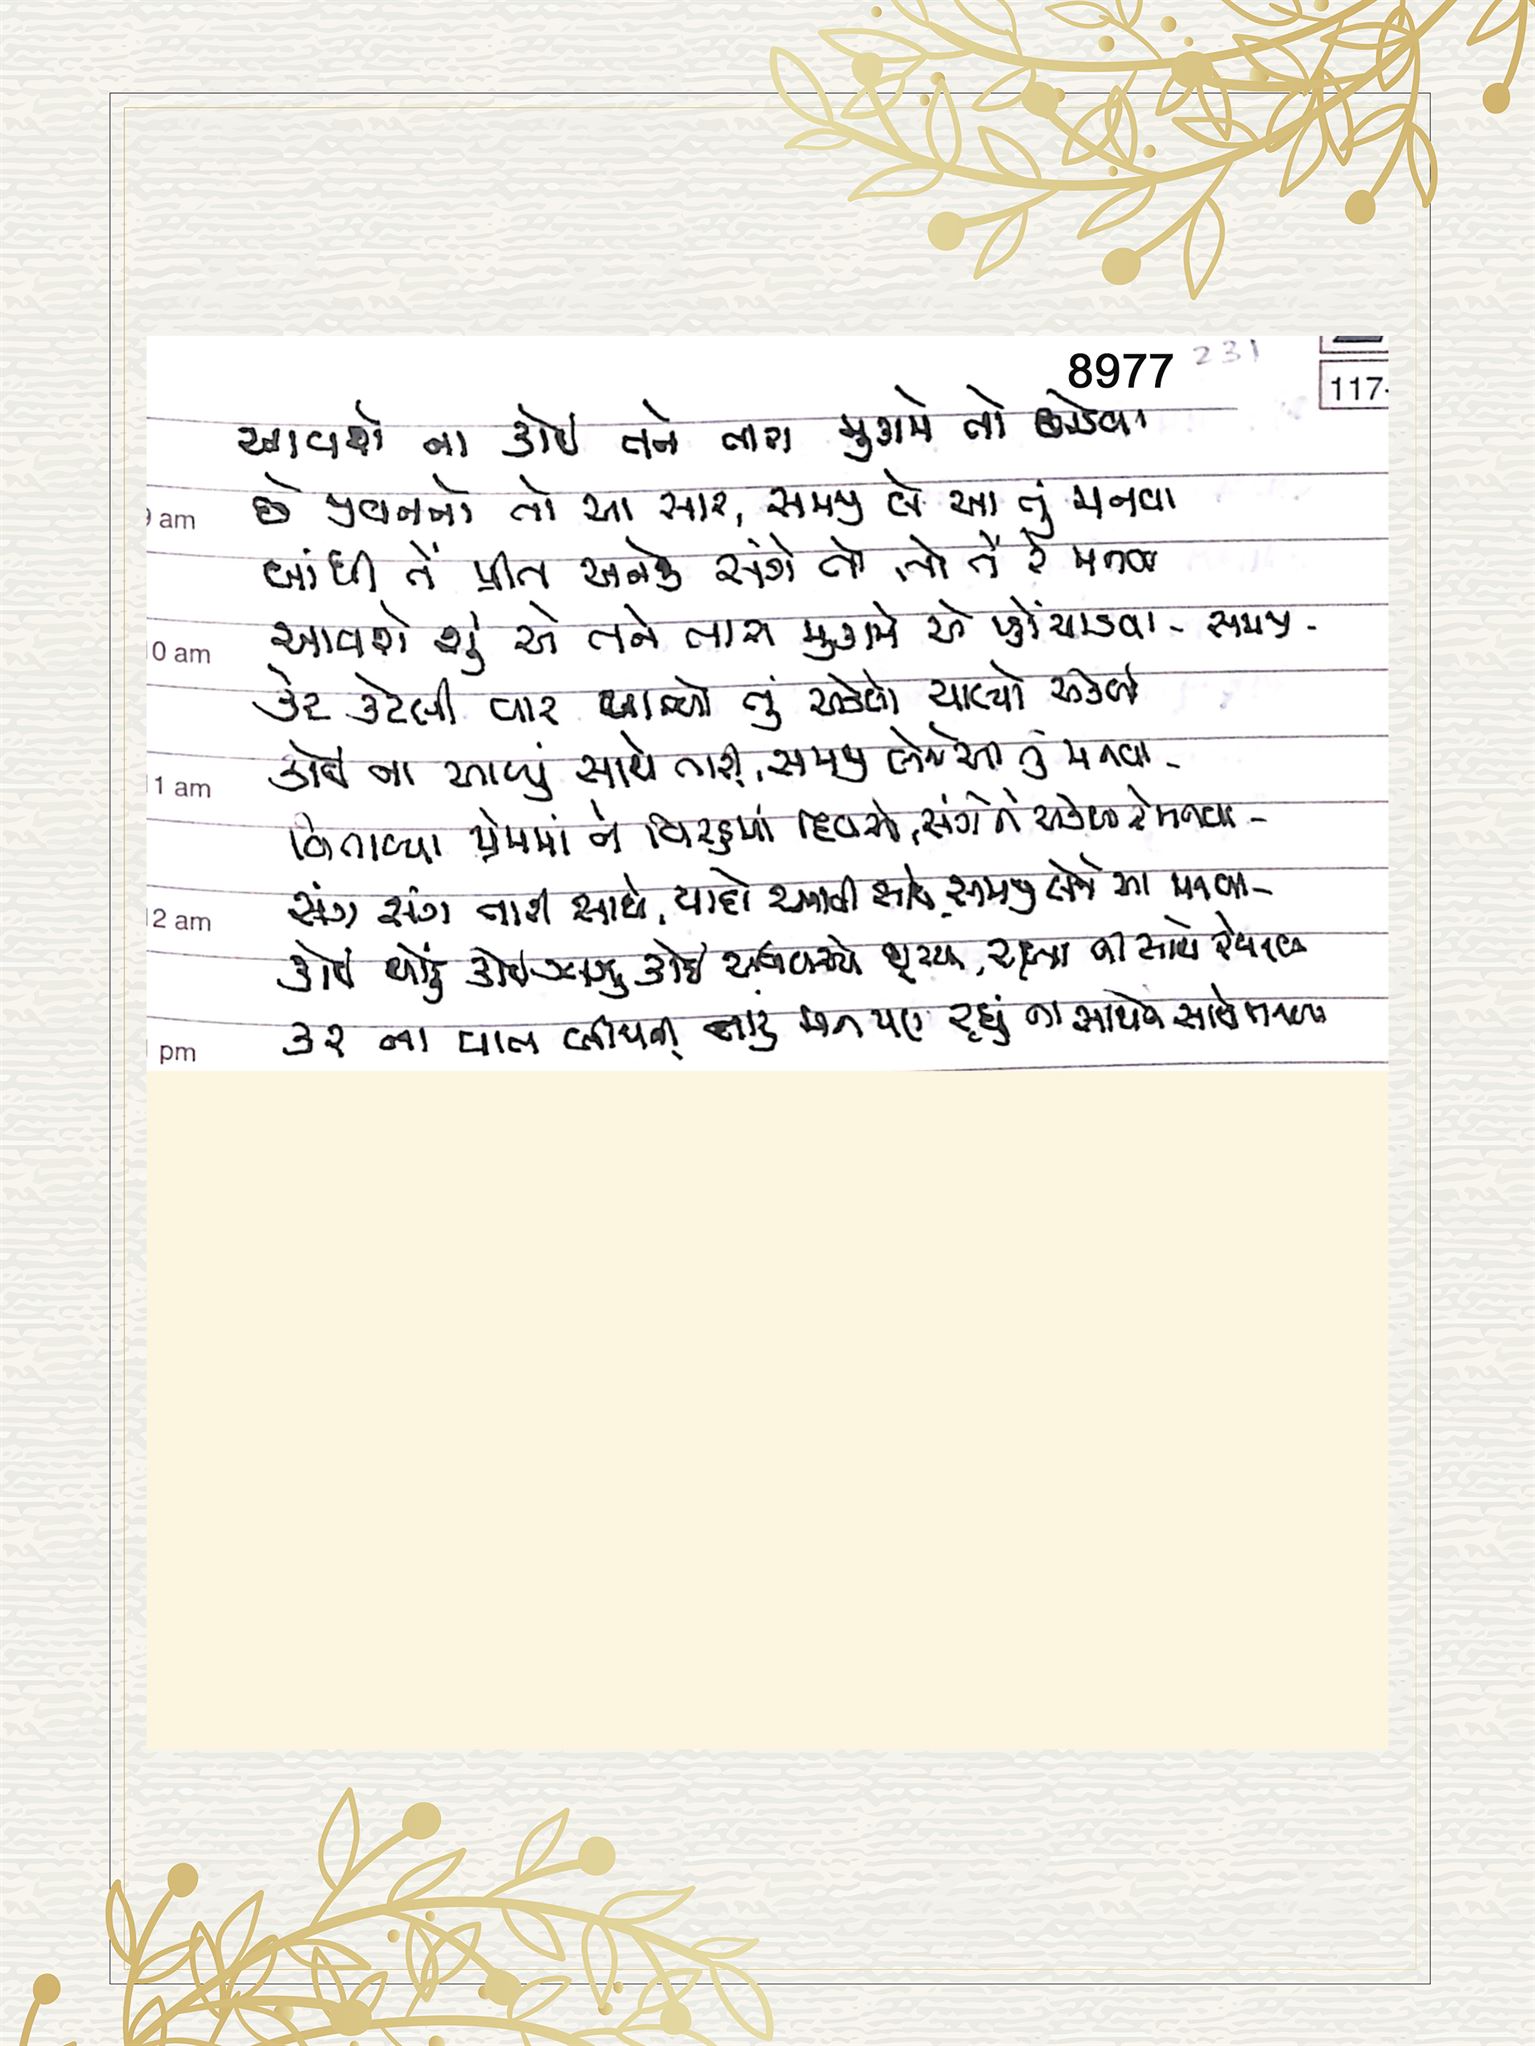 8977 231
117-
આવશે ના કોઈ તને તારા મુકામે તો છોડવા
9 am છે જીવનનો તો આ સાર, સમજી લે આ તું મનવા
બાંધી તેં પ્રીત અનેક સંગે તો, તો તેં રે મનવા
10 am આવશે શું એ તને તારા મુકામે એ પહોંચાડવા - સમજી -
કેટ કેટલી વાર આવ્યો તું એકલો ચાલ્યો એકલો
11 am કોઈ ના આવ્યું સાથે તારી, સમજી લેજે આ તું મનવા -
વિતાવ્યા પ્રેમમાં ને વિરહમાં દિવસો, સંગે ને એકલા રે મનવા -
12 am સંગ સંગ તારી સાથે, યાદો આવી સાથે, સમજી લેજે આ મનવા -
કોઈ થોડું કોઈ કોઈ, રહ્યા ના સાથે રે મનવા
pm કર ના વાત બીજાની તારું મન પણ રહ્યું ના સાથે ને સાથે મનવા